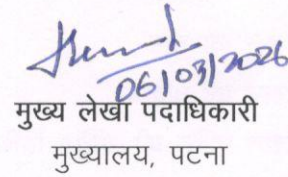 06/03/2026
मुख्य लेखा पदाधिकारी
मुख्यालय, पटना